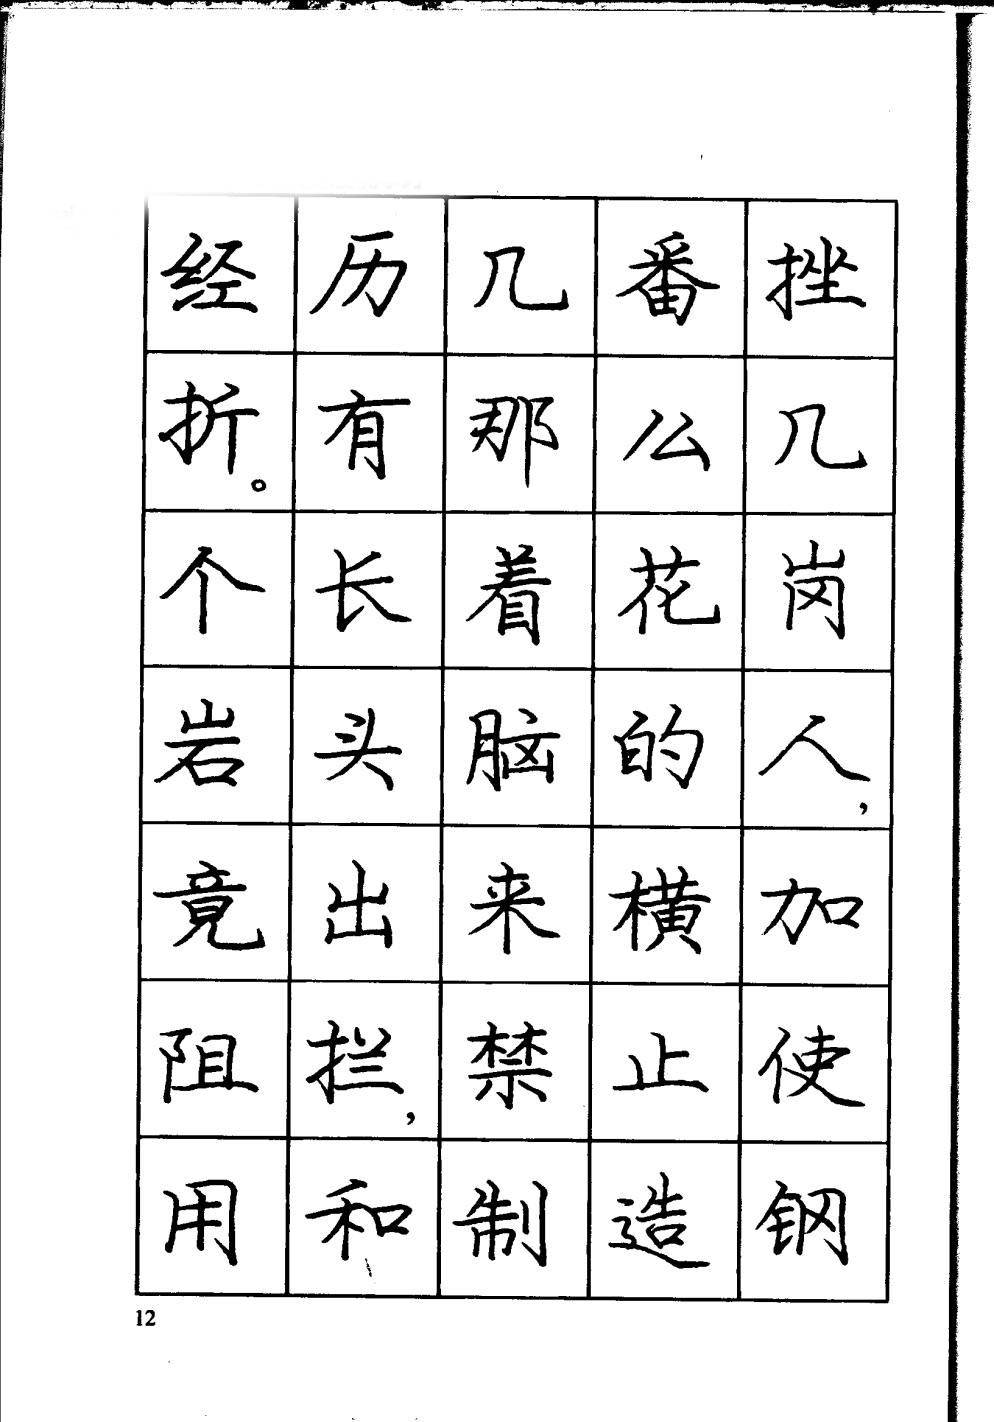 经历几番挫
折。有那么几
个长着花岗
岩头脑的人，
竟出来横加
阻拦，禁止使
用和制造钢
12